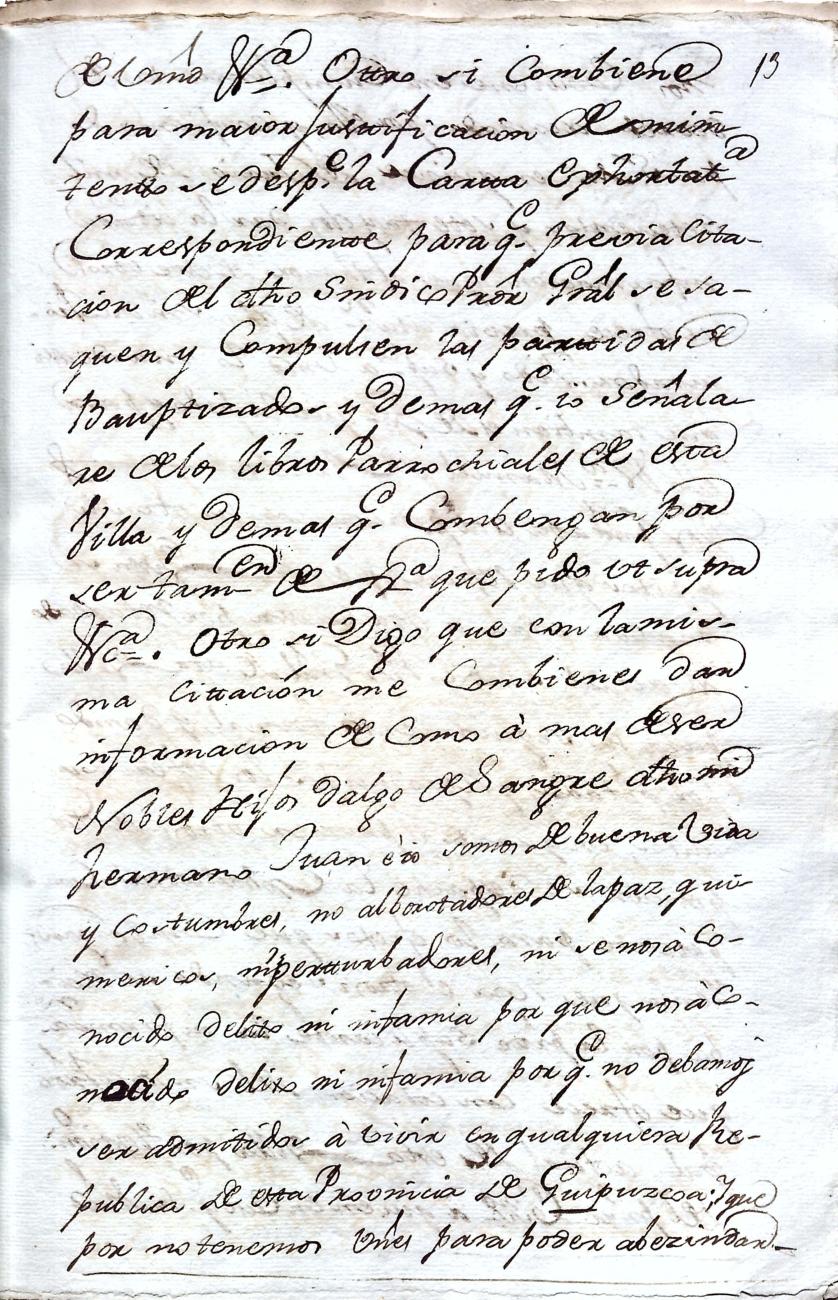 de lo mió Nª. Ottro si Combiene 13
para maior Justtificacion de mi in-
tento se despᵉ. la Cartta Exhortatª
Correspondientte para qᵉ. previa Cita-
cion del dho Sindico Prōr Grāl se sa-
quen y Compulsen las parttidas de
Bauptizados y demas qᵉ. io Señala
re de los libros Parrochiales de esta
Villa y demas qᵉ. Combengan por
ser tamᵉⁿ de Jª que pido ut supra
Ncª. Otro si Digo que con la mis-
ma Cittación me Combienes dar
informacion de Como à mas de ser
Nobles Hijos dalgo de Sangre dho mi
hermano Juan è io somos de buena Vida
y Costumbres, no alborotadores de la paz, qui-
mericos, ni pertturbadores, ni se nos à Co-
nocido delito ni infamia por que nos à Co-
nocido delito ni infamia por qᵉ. no debamos
ser admitidos à vivir en qualquiera Re-
publica de esta Provincia de Guipuzcoa; Y que
por no tenemos vn̄es para poder abezindar-